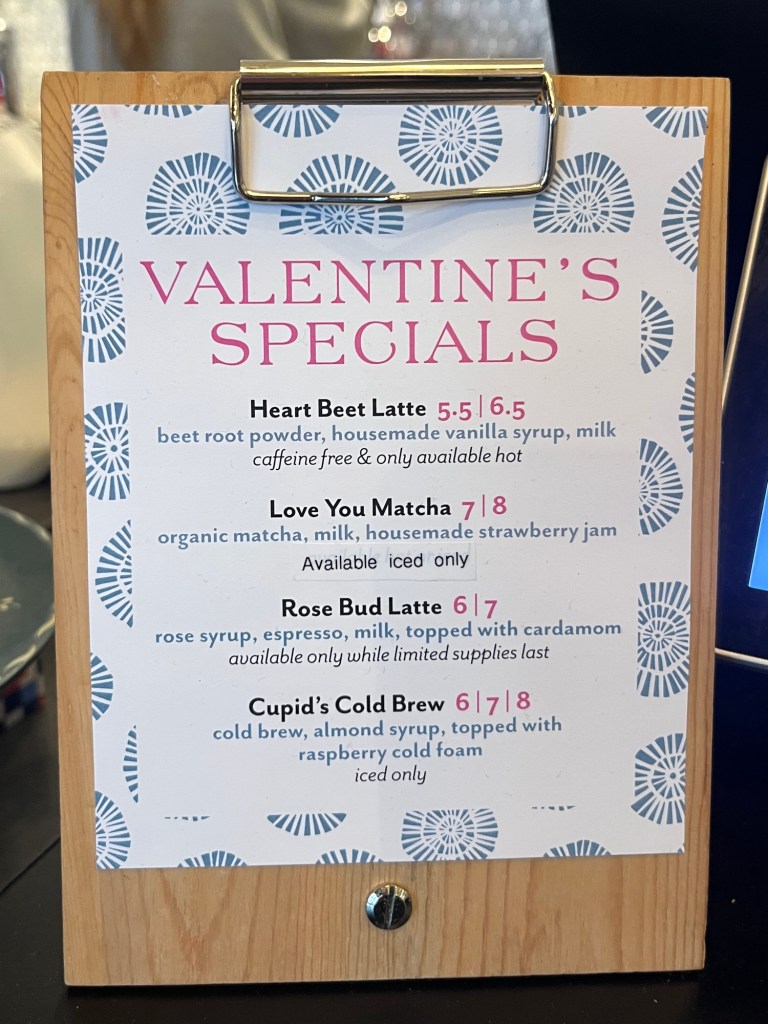 VALENTINE'S
SPECIALS
Heart Beet Latte 5.5 | 6.5
beet root powder, housemade vanilla syrup, milk
caffeine free & only available hot
Love You Matcha 7 | 8
organic matcha, milk, housemade strawberry jam
Available iced only
Rose Bud Latte 6 | 7
rose syrup, espresso, milk, topped with cardamom
available only while limited supplies last
Cupid's Cold Brew 6 | 7 | 8
cold brew, almond syrup, topped with
raspberry cold foam
iced only